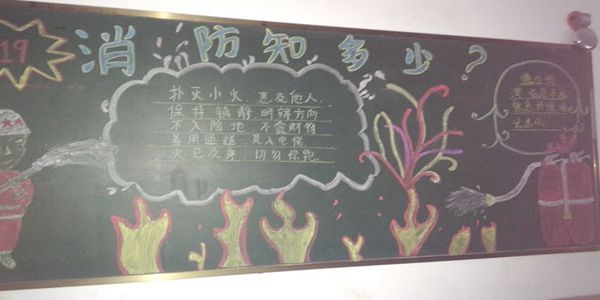 119
消防知多少?
扑灭小火,惠及他人.
保持镇静,明辨方向
不入险地,不贪财物
善用通道,莫入电梯
火已及身,切勿惊跑。
逃生口